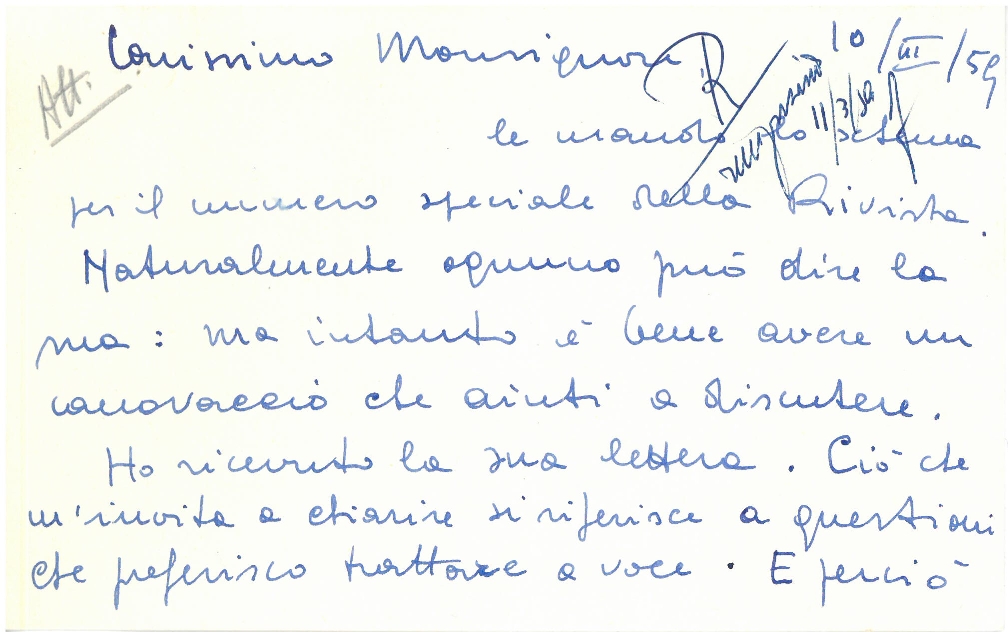 Carissimo Monsignore
10/III/59
Att.
R
ringraziato
11/3/59
le mando lo schema
per il numero speciale della Rivista.
Naturalmente ognuno può dire la
sua: ma intanto è bene avere un
canovaccio che aiuti a discutere.
Ho ricevuto la sua lettera. Ciò che
m'invita a chiarire si riferisce a questioni
che preferisco trattare a voce. E perciò